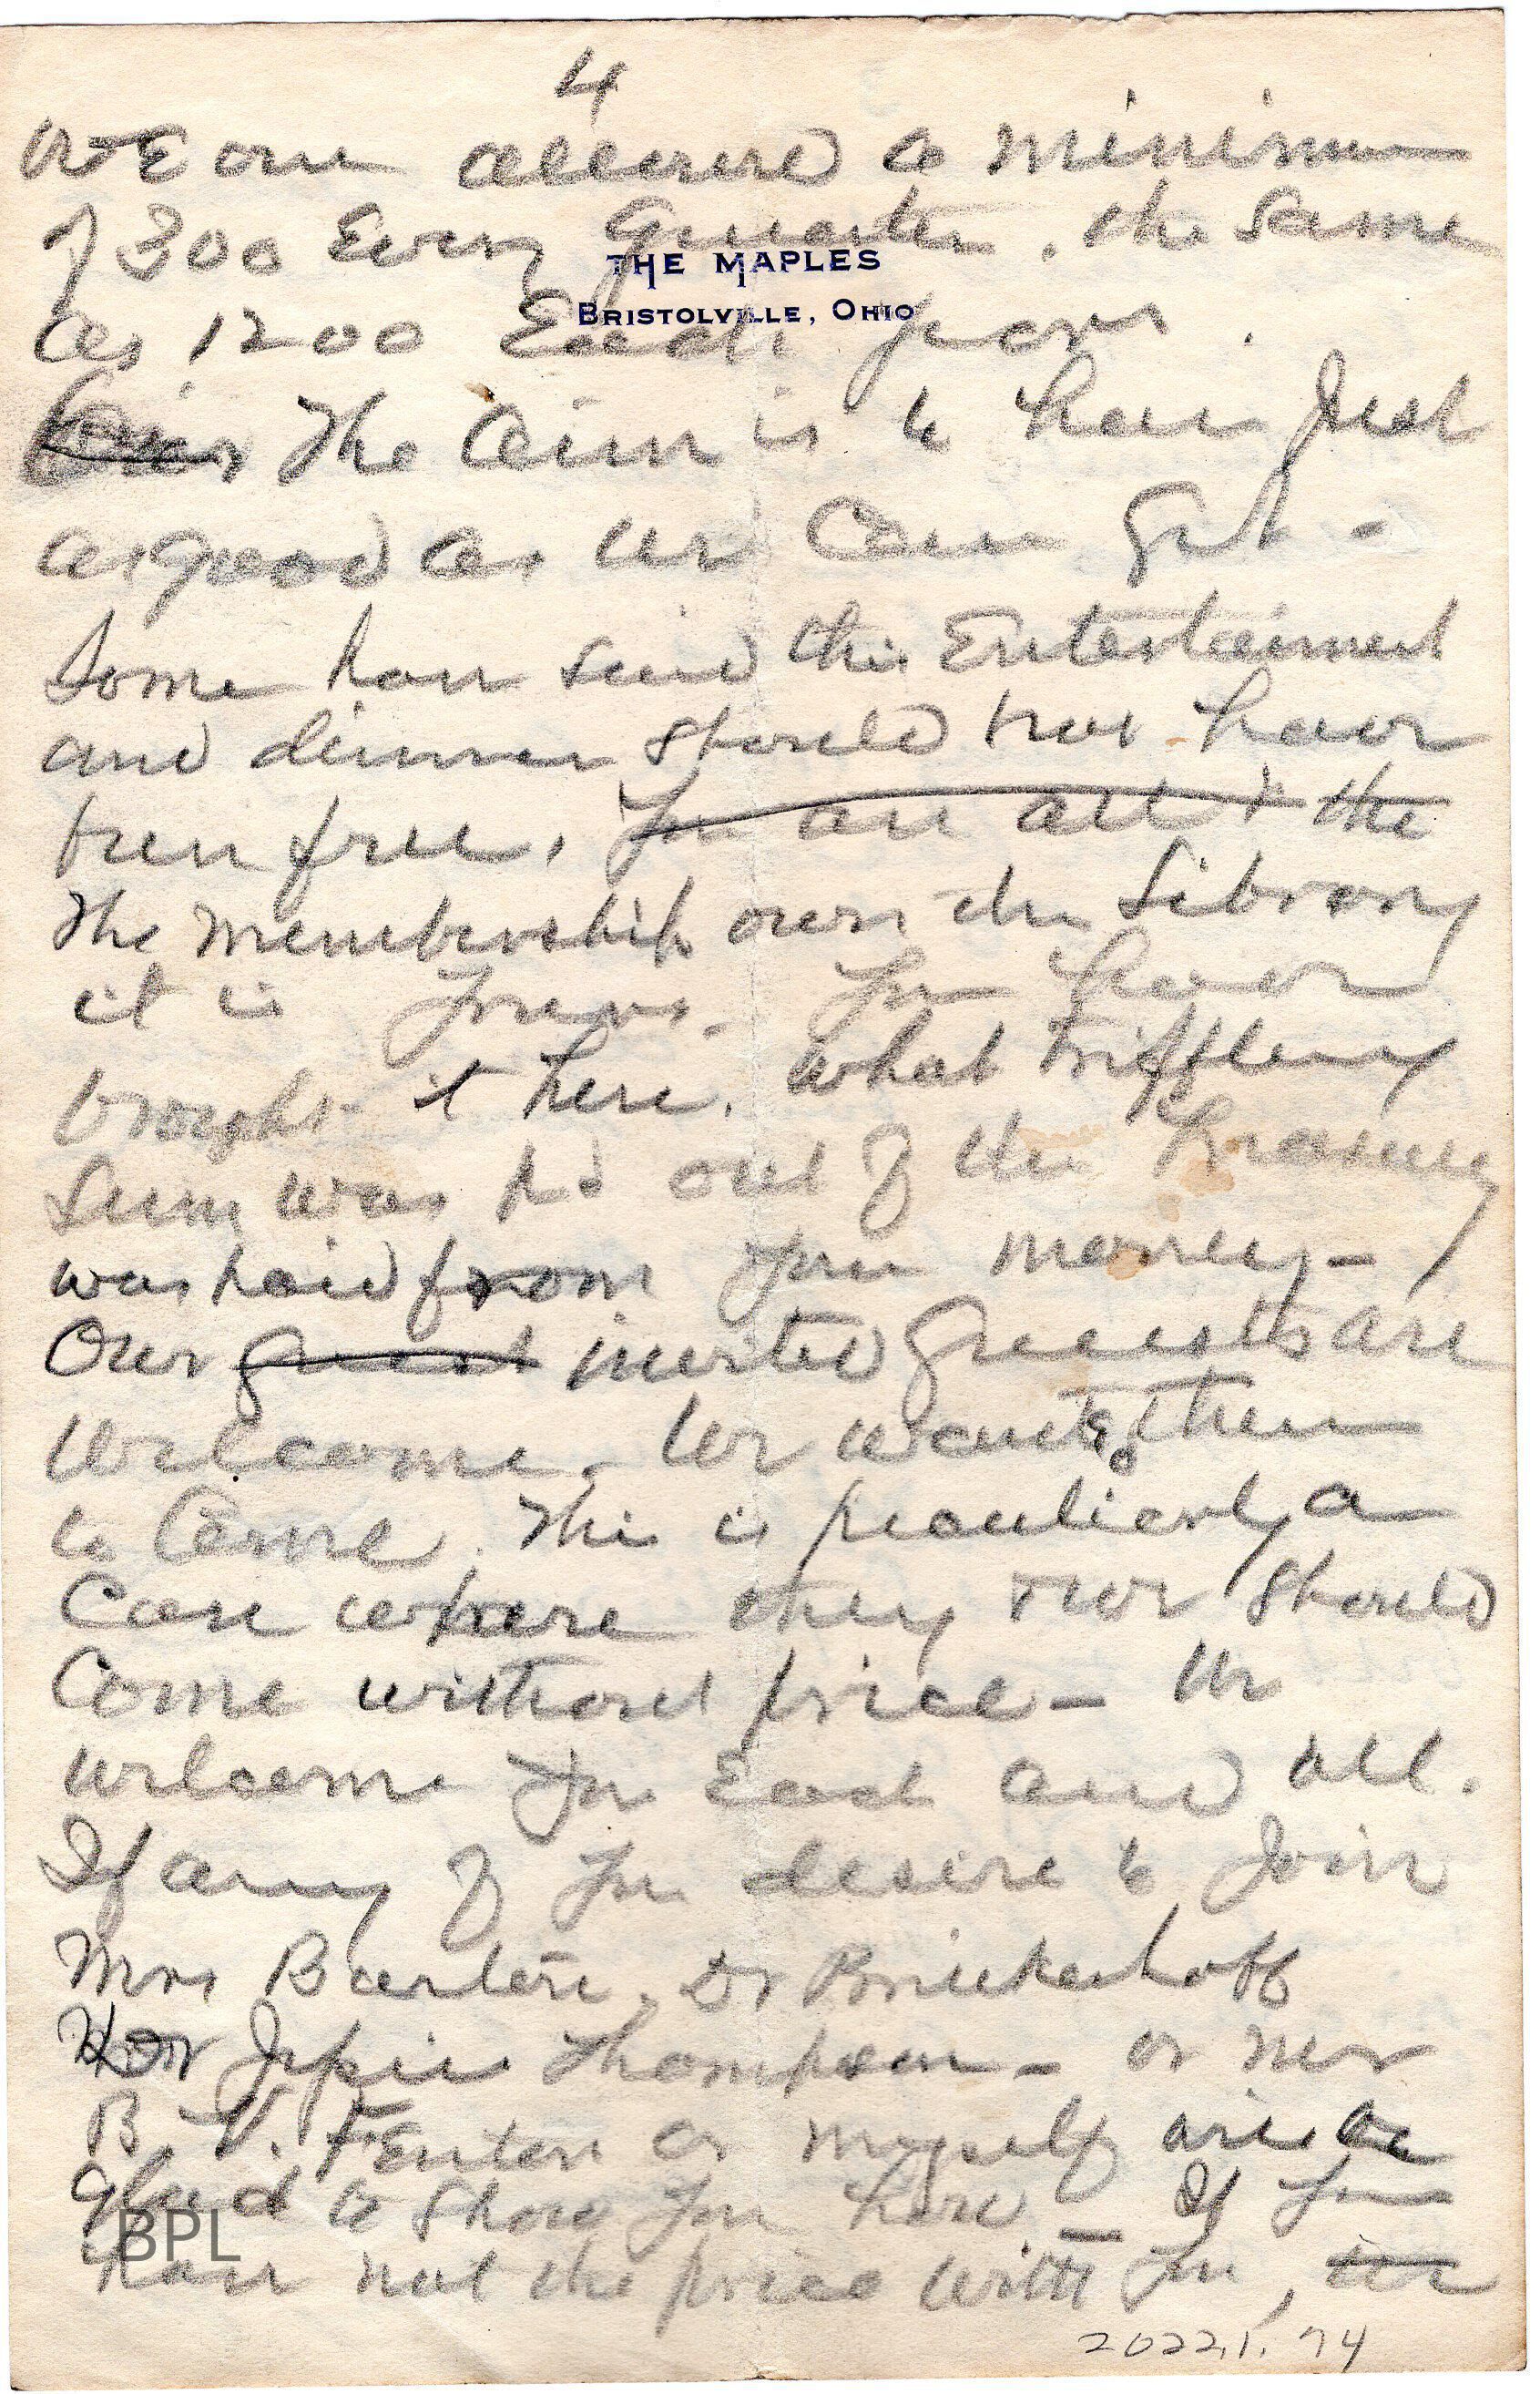 4
We are allowed a minimum
of 300 Every Quarter. the same
THE MAPLES
as 1200 Each year.
BRISTOLVILLE, OHIO
The Aim is to have Just
as good as we Can Get -
Some have said this Entertainment
and dinner should not have
been free, You are all the
The Membership own the Library
it is yours. You have
brought it here. What triffling
Sum was p'd out of the Treasury
was paid from your money -
Our guest invited Guests are
Welcome. We wants them
to Come. This is peculiarly a
Case where they should
Come without price - We
welcome you Each and all.
If any of you desire to Join
Mrs Barbe, Dr Brinkerhoff
Jessie Thompson - or Mrs
B. V. Fenton or myself will be
glad to show you how - If you
have not the price with you, we
BPL
2022.1.74